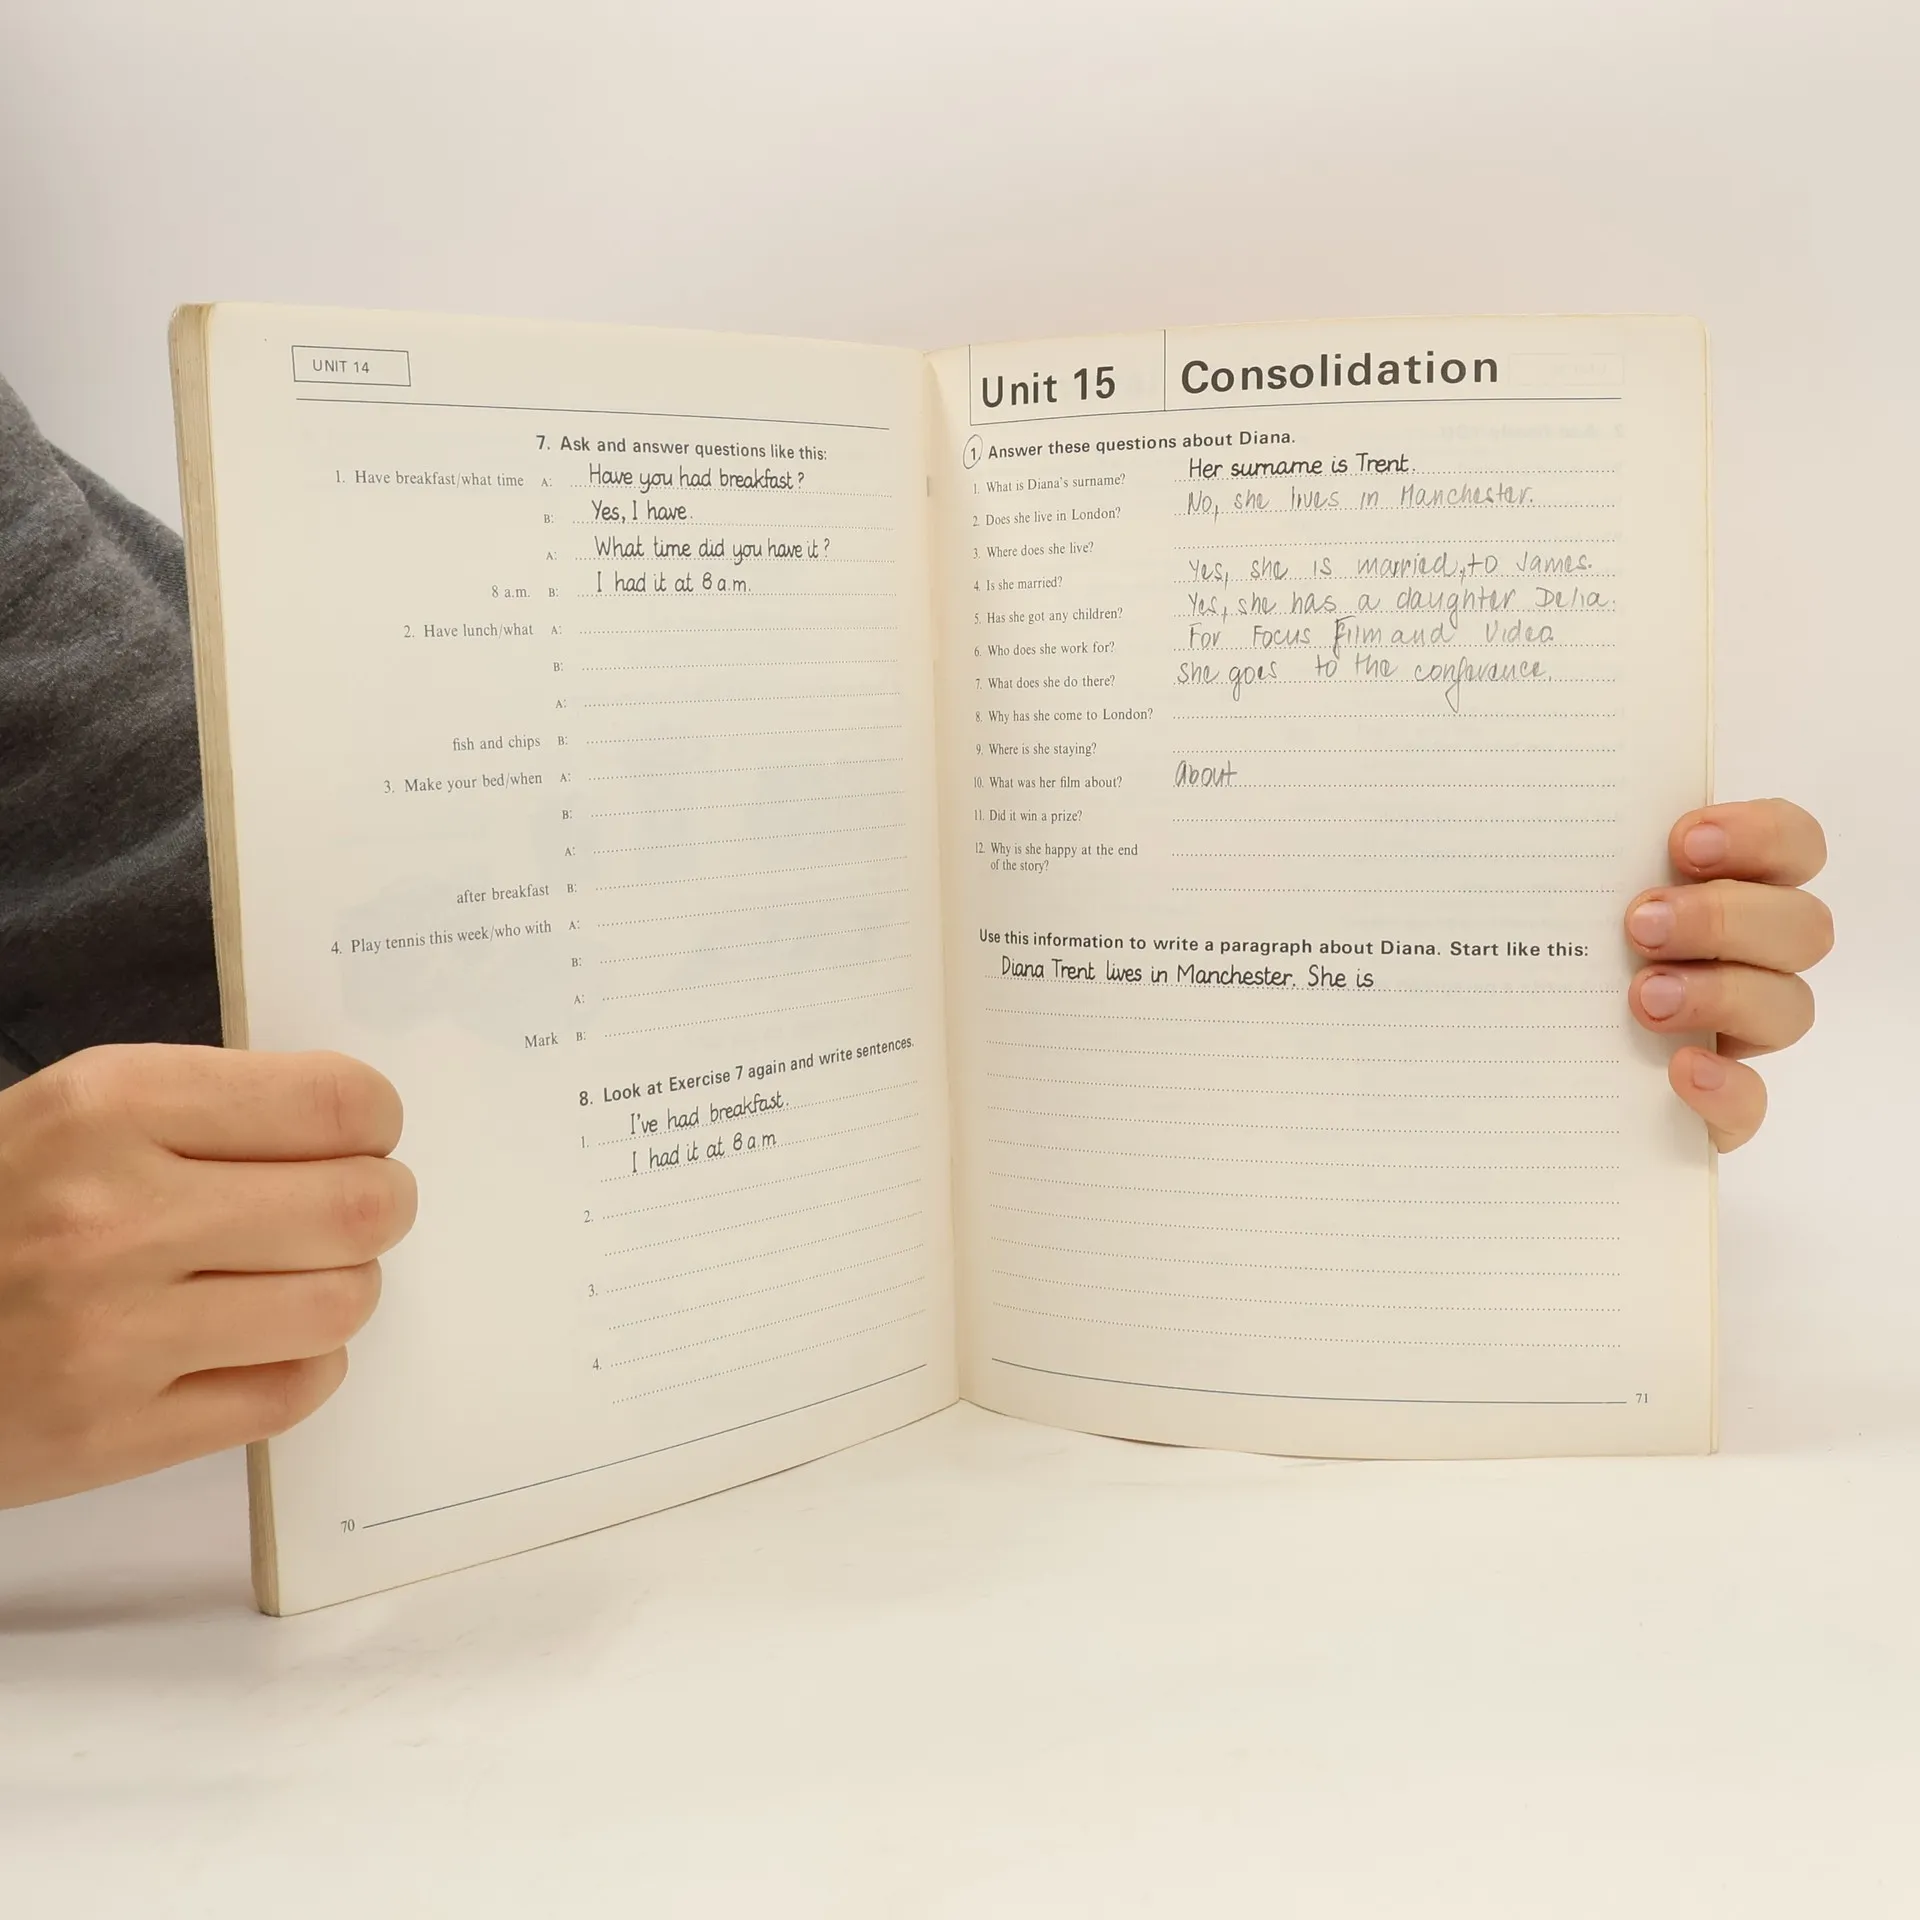 UNIT 14
7. Ask and answer questions like this:
1. Have breakfast/what time A: Have you had breakfast?
B: Yes, I have.
A: What time did you have it?
8 a.m. B: I had it at 8 a.m.
2. Have lunch/what A:
B:
A:
fish and chips B:
3. Make your bed/when A:
B:
A:
after breakfast B:
4. Play tennis this week/who with A:
B:
A:
Mark B:
8. Look at Exercise 7 again and write sentences.
1. I've had breakfast.
I had it at 8 a.m.
2.
3.
4.
70
Unit 15 Consolidation
1. Answer these questions about Diana.
1. What is Diana's surname? Her surname is Trent.
2. Does she live in London? No, she lives in Manchester.
3. Where does she live?
4. Is she married? Yes, she is married, to James.
5. Has she got any children? Yes, she has a daughter Delia.
6. Who does she work for? For Focus Film and Video
7. What does she do there? She goes to the conferance.
8. Why has she come to London?
9. Where is she staying?
10. What was her film about? about
11. Did it win a prize?
12. Why is she happy at the end
of the story?
Use this information to write a paragraph about Diana. Start like this:
Diana Trent lives in Manchester. She is
71